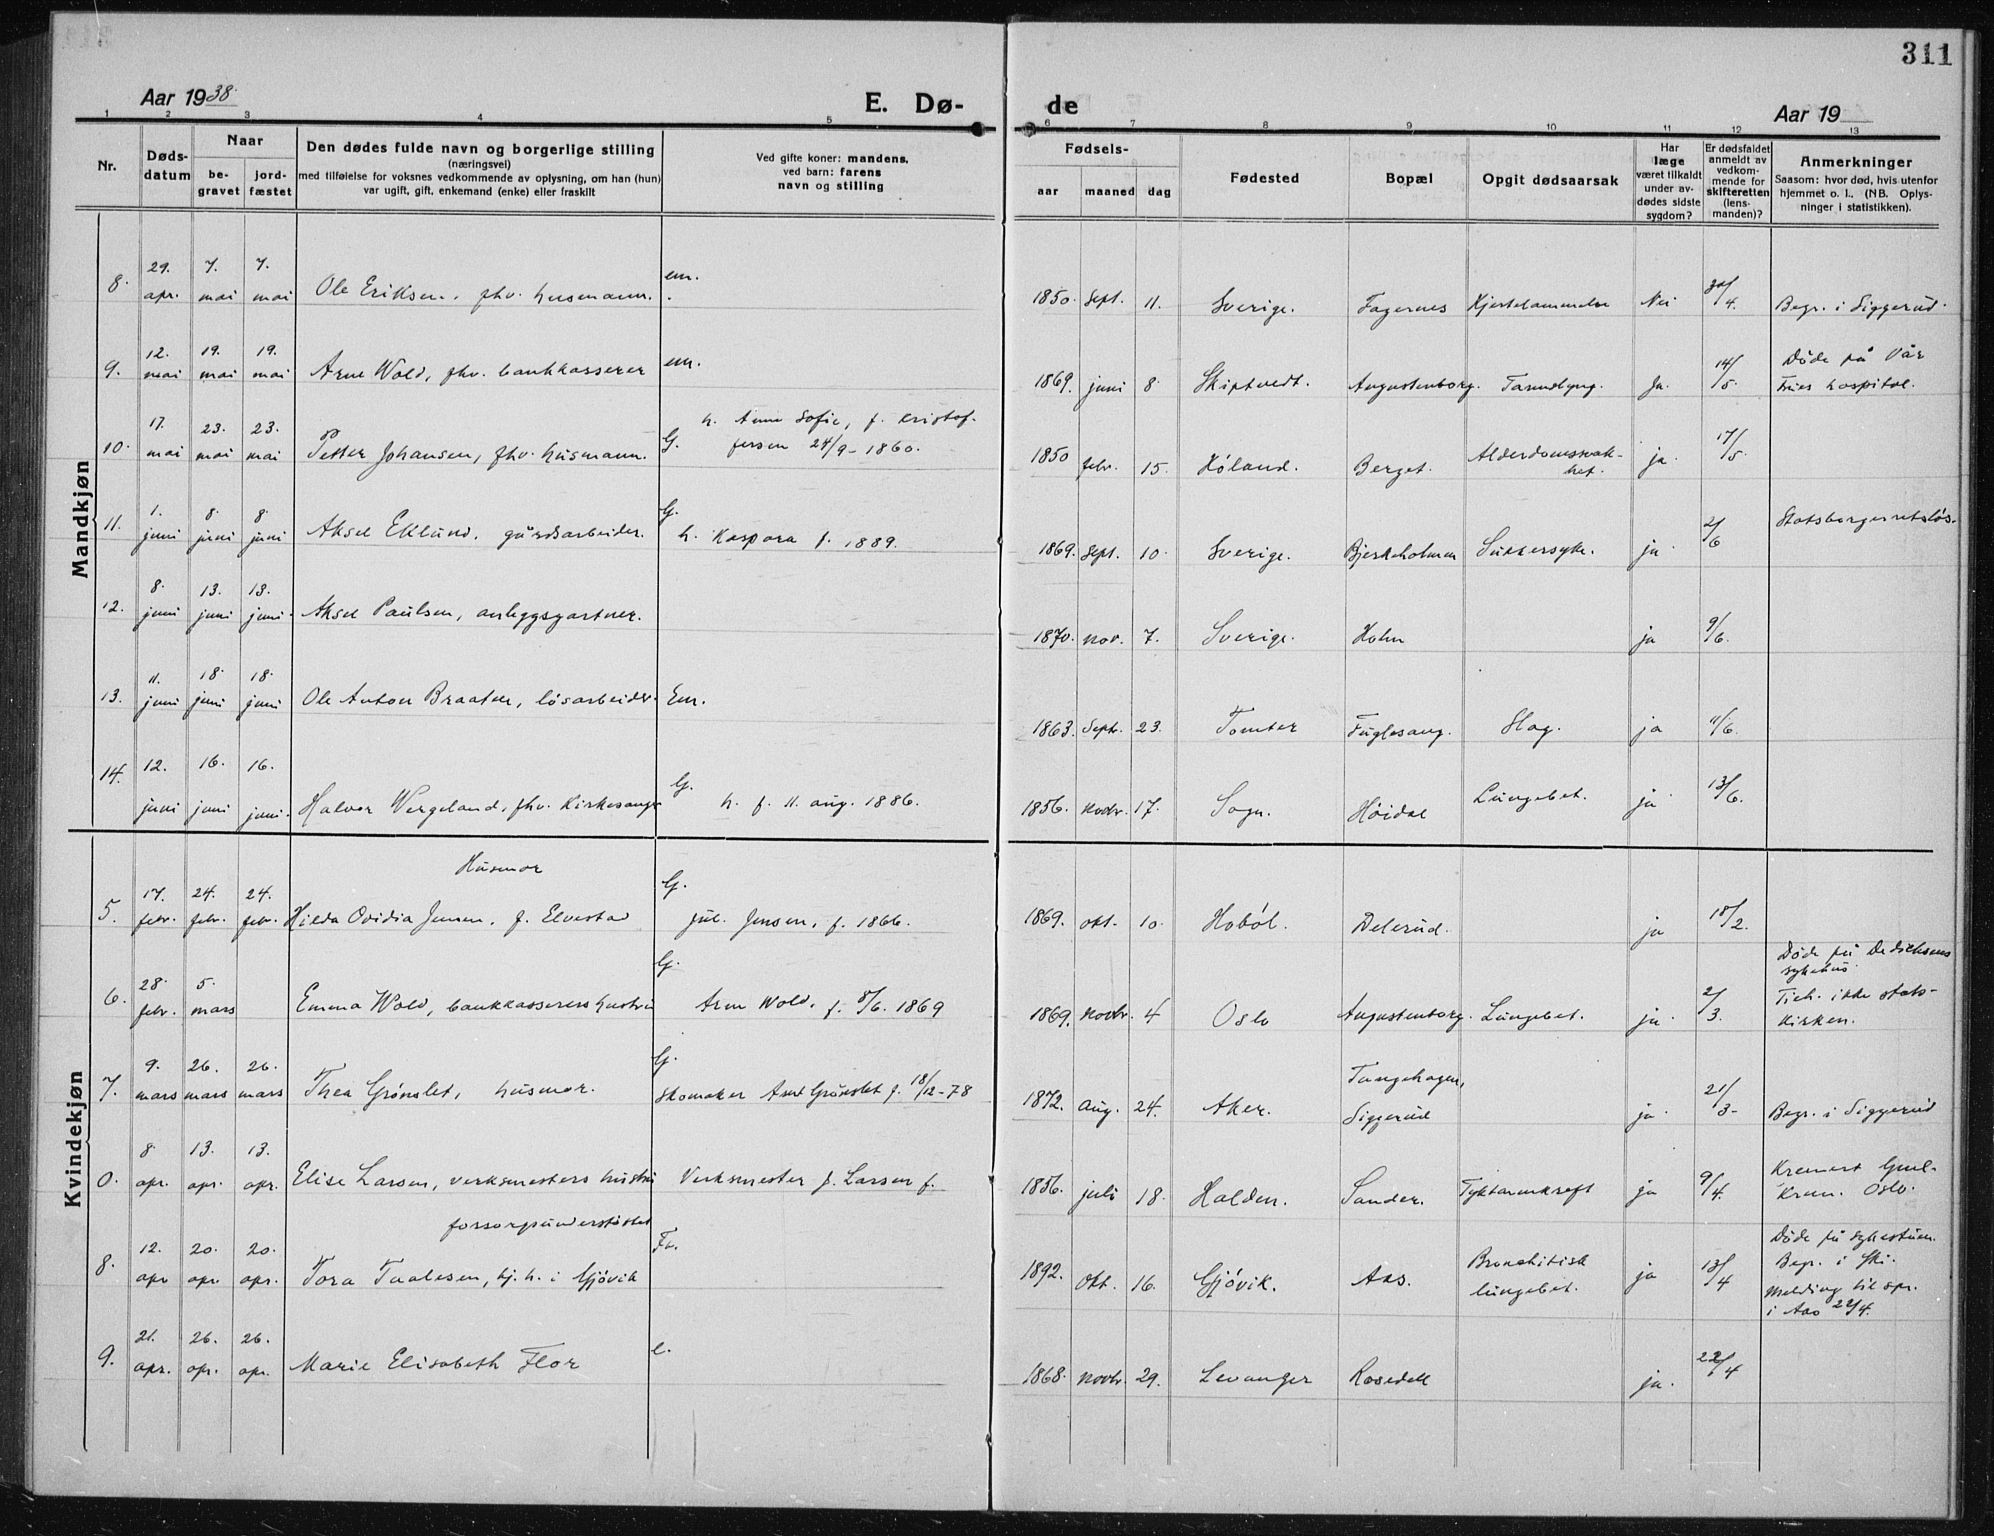 311
Aar 1938.
E. Dø-
de
Aar 19
1 2 3 4 5 6 7 8 9 10 11 12 13
Nr.
Dødsdatum
Naar
begravet
jordfæstet
Den dødes fulde navn og borgerlige stilling
(næringsvei)
med tilføielse for voksnes vedkommende av oplysning, om han (hun)
var ugift, gift, enkemand (enke) eller fraskilt
Ved gifte koner: mandens,
ved barn: farens
navn og stilling
Fødsels-
aar maaned dag
Fødested
Bopæl
Opgit dødsaarsak
Har
læge
været tilkaldt
under av-
dødes sidste
sygdom?
Er dødsfaldet
anmeldt av
vedkom-
mende for
skifteretten
(lens-
manden)?
Anmerkninger
Saasom: hvor død, hvis utenfor
hjemmet o. l.. (NB. Oplys-
ninger i statistikken).
Mandkjøn
8. 29. apr. 7. mai 7. mai Ole Eriksen, fhv. husmann. em. 1850. Sept. 11. Sverige. Fagernes Hjertelammelse Nei 30/4. Begr. i Siggerud.
9. 12. mai 19. mai 19. mai Arne Wold, fhv. bankkasserer em. 1869. juni 8. Skiptvedt. Augustenborg. Ja. 14/5. Døde på Vår Frues hospital.
10. 17. mai 23. mai 23. mai Petter Johansen, fhv. husmann. G. h. Anne Sofie, f. Kristoffersen 24/9-1860. 1850 febr. 15. Høland. Berget. Alderdomssvakhet. ja 17/5.
11. 1. juni 8. juni 8. juni Aksel Eklund, gårdsarbeider. G. h. Kaspara f. 1889. 1869. Sept. 10. Sverige. Bjerkeholmen Sukkersyke. ja 2/6 Statsborgerretsløs.
12. 8. juni 13. juni 13. juni. Aksel Paulsen, anleggsgartner. 1870. nov. 7. Sverige. Holm ja 9/6.
13. 11. juni 18. juni 18. juni Ole Anton Braaten, løsarbeider. Em. 1863. Septr. 23. Tomter Fuglesang. Slag. ja 11/6.
14. 12. juni 16. juni 16. juni. Halvor Wergeland, fhv. Kirkesanger G. h. f. 11. aug. 1886. 1856. Novbr. 17. Sogn. Høidal Lungebet. ja 13/6.
Kvindekjøn
5. 17. febr. 24. febr. 24. febr. Husmor Hilda Ovidia Jensen, f. Elvestad G. Jul. Jensen, f. 1866. 1869. okt. 10. Hobøl. Delerud. ja 18/2.
6. 28. febr. 5. mars Emma Wold, bankkasserers hustru G. Arne Wold, f. 8/6. 1869 1869. Novbr. 4 Oslo Augustenborg. Lungebet. ja. 2/3. Døde på Dedichens sykehus. Tilh. ikke statskirken.
7. 9. mars 26. mars 26. mars Thea Grønslet, husmor. G. Skomaker Grønslet f. 18/12-78 1872. Aug. 24. Aker. Tangehagen, Siggerud ja 21/3- Begr. i Siggerud
0. 8. apr. 13. apr. 13. apr. Elise Larsen, verksmesters hustru Verksmester J. Larsen f. 1856. juli 18. Halden. Sander. Tyktarmkreft ja 9/4. Kremert Krem. Oslo.
8. 12. apr 20. apr. 20. apr. forsorgsunderstøttet Tora Taalesen, hj. h. i Gjøvik Fr. 1892. Okt. 16. Gjøvik. Aas. Bronchitisk lungebet. ja 13/4 Døde på sykestuen. Begr. i Ski. Melding til spr. i Aas 22/4.
9. 21. apr. 26. apr. 26. apr. Marie Elisabeth Flor e. 1868. Novbr. 29. Levanger Rosedal ja. 22/4